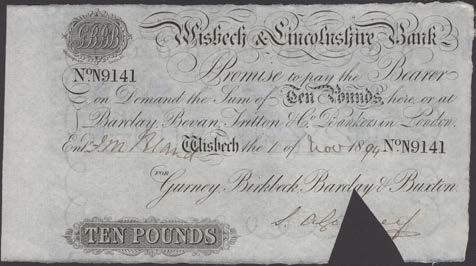 Wisbech & Lincolnshire Bank
NoN9141 Promise to pay the Bearer
on Demand the Sum of Ten Pounds, here, or at
Barclay, Bevan, Tritton & Co. Bankers in London.
Entd Wisbech the 1 of Nov 1894 NoN9141
FOR
Gurney, Birkbeck, Barclay & Buxton
TEN POUNDS